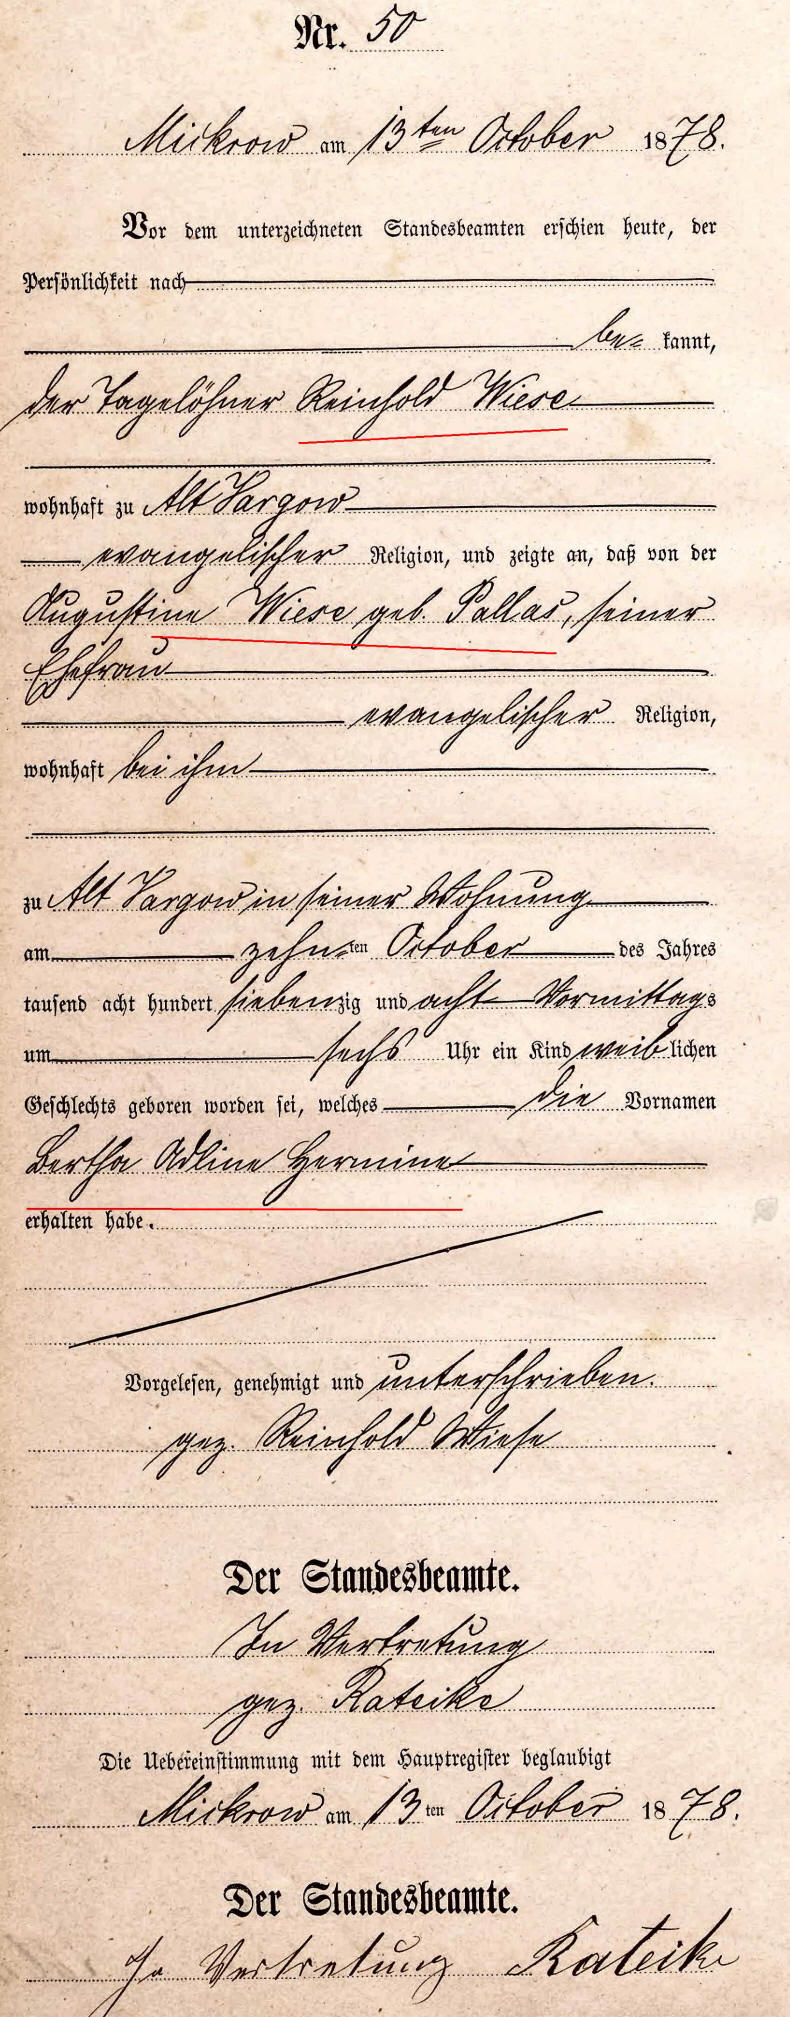 Nr. 50
Mickrow am 13ten October 1878.
Vor dem unterzeichneten Standesbeamten erschien heute, der
Persönlichkeit nach
be= kannt,
der Tagelöhner Reinhold Wiese
wohnhaft zu Alt Vargow
evangelischer Religion, und zeigte an, daß von der
Augustine Wiese geb. Pallas, seiner
Ehefrau
evangelischer Religion,
wohnhaft bei ihm
zu Alt Vargow in seiner Wohnung
am zehnten October des Jahres
tausend acht hundert siebenzig und acht Vormittags
um sechs Uhr ein Kind weiblichen
Geschlechts geboren worden sei, welches die Vornamen
Bertha Adline Hermine
erhalten habe.
Vorgelesen, genehmigt und unterschrieben.
gez. Reinhold Wiese
Der Standesbeamte.
In Vertretung
gez. Rateike
Die Uebereinstimmung mit dem Hauptregister beglaubigt
Mickrow am 13ten October 1878.
Der Standesbeamte.
In Vertretung Rateike